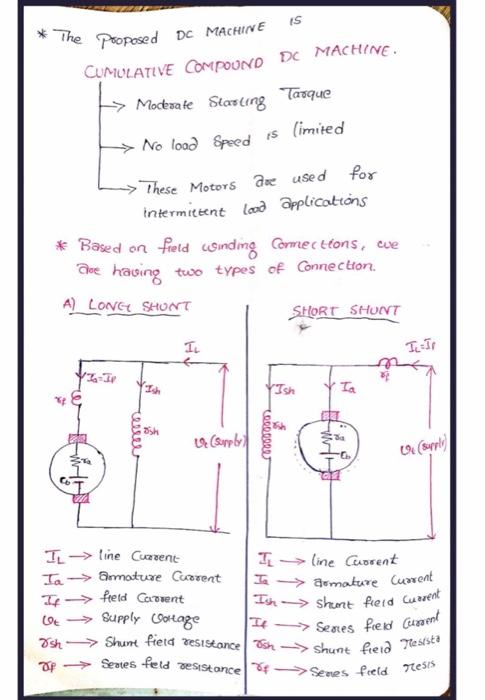 * The Proposed DC MACHINE IS
CUMULATIVE COMPOUND DC MACHINE.
→ Moderate Starting Tarque
→ No load Speed is limited
→ These Motors are used for
intermittent load applications
* Based on field winding Connections, we
are having two types of Connection.
A) LONG SHUNT
SHORT SHUNT
IL
Ia=If
Ish
rf
rsh
Vt (Supply)
ra
Eb
IL=If
rf
Ish
Ia
rsh
ra
Eb
Vt (Supply)
IL → line Current
Ia → armature Current
If → field Current
Vt → Supply Voltage
rsh → Shunt field resistance
rf → Series field resistance
IL → line Current
Ia → armature Current
Ish → Shunt field Current
If → Series field Current
rsh → Shunt field Resista
rf → Series field resis